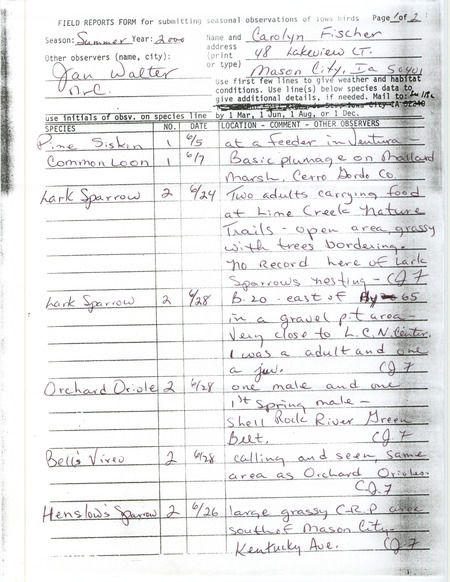 FIELD REPORTS FORM for submitting seasonal observations of Iowa birds Page 1 of 2
Season: Summer Year: 2000 Name and address (print or type) Carolyn Fischer
48 Lakeview CT.
Mason City, Ia 50401
Other observers (name, city):
Jan Walter
M.C.
Use first few lines to give weather and habitat
conditions. Use line(s) below species data to
give additional details, if needed. Mail to:
Iowa City IA 52240
use initials of obsv. on species line by 1 Mar, 1 Jun, 1 Aug, or 1 Dec.
SPECIES NO. DATE LOCATION - COMMENT - OTHER OBSERVERS
Pine Siskin 1 6/5 at a feeder in Ventura -
Common Loon 1 6/7 Basic plumage on Mallard
Marsh, Cerro Gordo Co.
Lark Sparrow 2 6/24 Two adults carrying food
at Lime Creek Nature
Trails - open area, grassy
with trees bordering.
no record here of Lark
Sparrows nesting - CJF
Lark Sparrow 2 6/28 B-20 - east of 65
in a gravel pit area -
Very close to L.C.N. Center.
1 was a adult and one
a juv. CJF
Orchard Oriole 2 6/28 one male and one
1st Spring male -
Shell Rock River Green
Belt. CJF
Bell's Vireo 2 6/28 calling and seen, same
area as Orchard Orioles.
CJF
Henslow's Sparrow 2 6/26 large grassy C-R-P area
south of Mason City -
Kentucky Ave. CJF